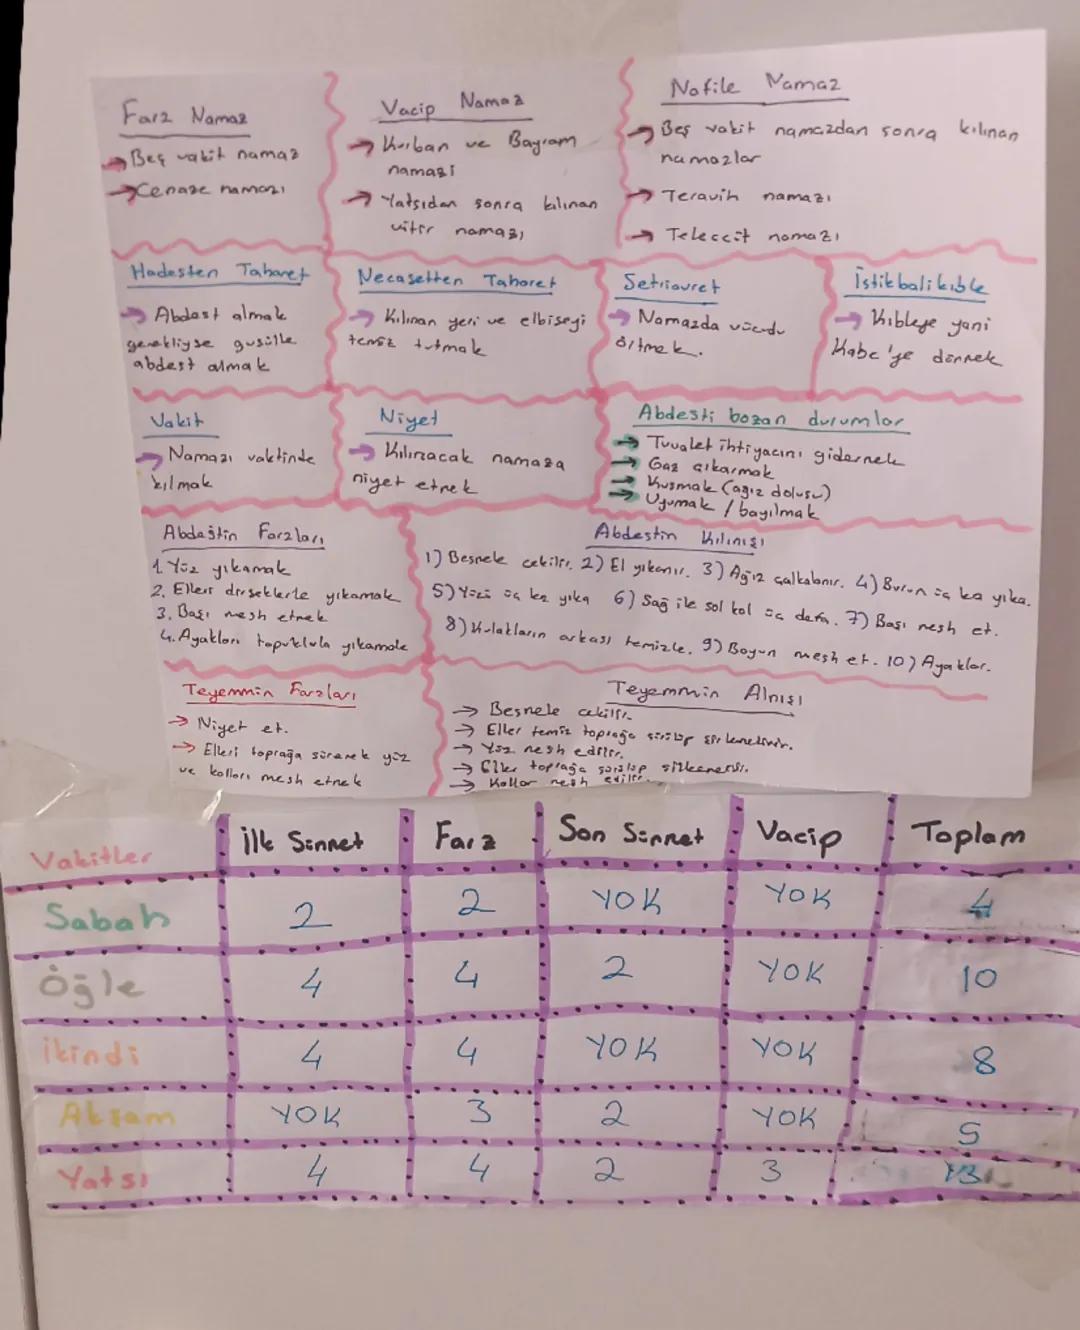 Farz Namaz
→ Beş vakit namaz
→ Cenaze namazı
Vacip Namaz
→ Kurban ve Bayram
namazı
→ Yatsıdan sonra kılınan
vitir namazı
Nafile Namaz
→ Beş vakit namazdan sonra kılınan
namazlar
→ Teravih namazı
→ Teleccüt namazı
Hadesten Taharet
→ Abdest almak
gerekliyse gusülle
abdest almak
Necasetten Taharet
→ Kılınan yeri ve elbiseyi
temiz tutmak
Setriavret
→ Namazda vücudu
örtmek.
İstikbalikıble
→ Kıbleye yani
Kabe'ye dönmek
Vakit
→ Namazı vaktinde
kılmak
Niyet
→ Kılınacak namaza
niyet etmek
Abdesti bozan durumlar
→ Tuvalet ihtiyacını gidermek
→ Gaz çıkarmak
→ Kusmak (ağız dolusu)
→ Uyumak / bayılmak
Abdestin Farzları
1. Yüz yıkamak
2. Elleri dirseklerle yıkamak
3. Başı mesh etmek
4. Ayakları topuklula yıkamak
Abdestin Kılınışı
1) Besmele çekilir. 2) El yıkanır. 3) Ağız çalkalanır. 4) Burun üç kez yıka.
5) Yüzü üç kez yıka 6) Sağ ile sol kol üç defa. 7) Başı mesh et.
8) Kulakların arkası temizle. 9) Boyun mesh et. 10) Ayaklar.
Teyemmün Farzları
→ Niyet et.
→ Elleri toprağa sürerek yüz
ve kolları mesh etmek
Teyemmün Alnışı
→ Besmele çekilir.
→ Eller temiz toprağa sürülüp silkelenir.
→ Yüz mesh edilir.
→ Eller toprağa sürülüp silkelenir.
→ Kollar mesh edilir.
Vakitler İlk Sünnet Farz Son Sünnet Vacip Toplam
Sabah 2 2 YOK YOK 4
Öğle 4 4 2 YOK 10
İkindi 4 4 YOK YOK 8
Akşam YOK 3 2 YOK 5
Yatsı 4 4 2 3 13